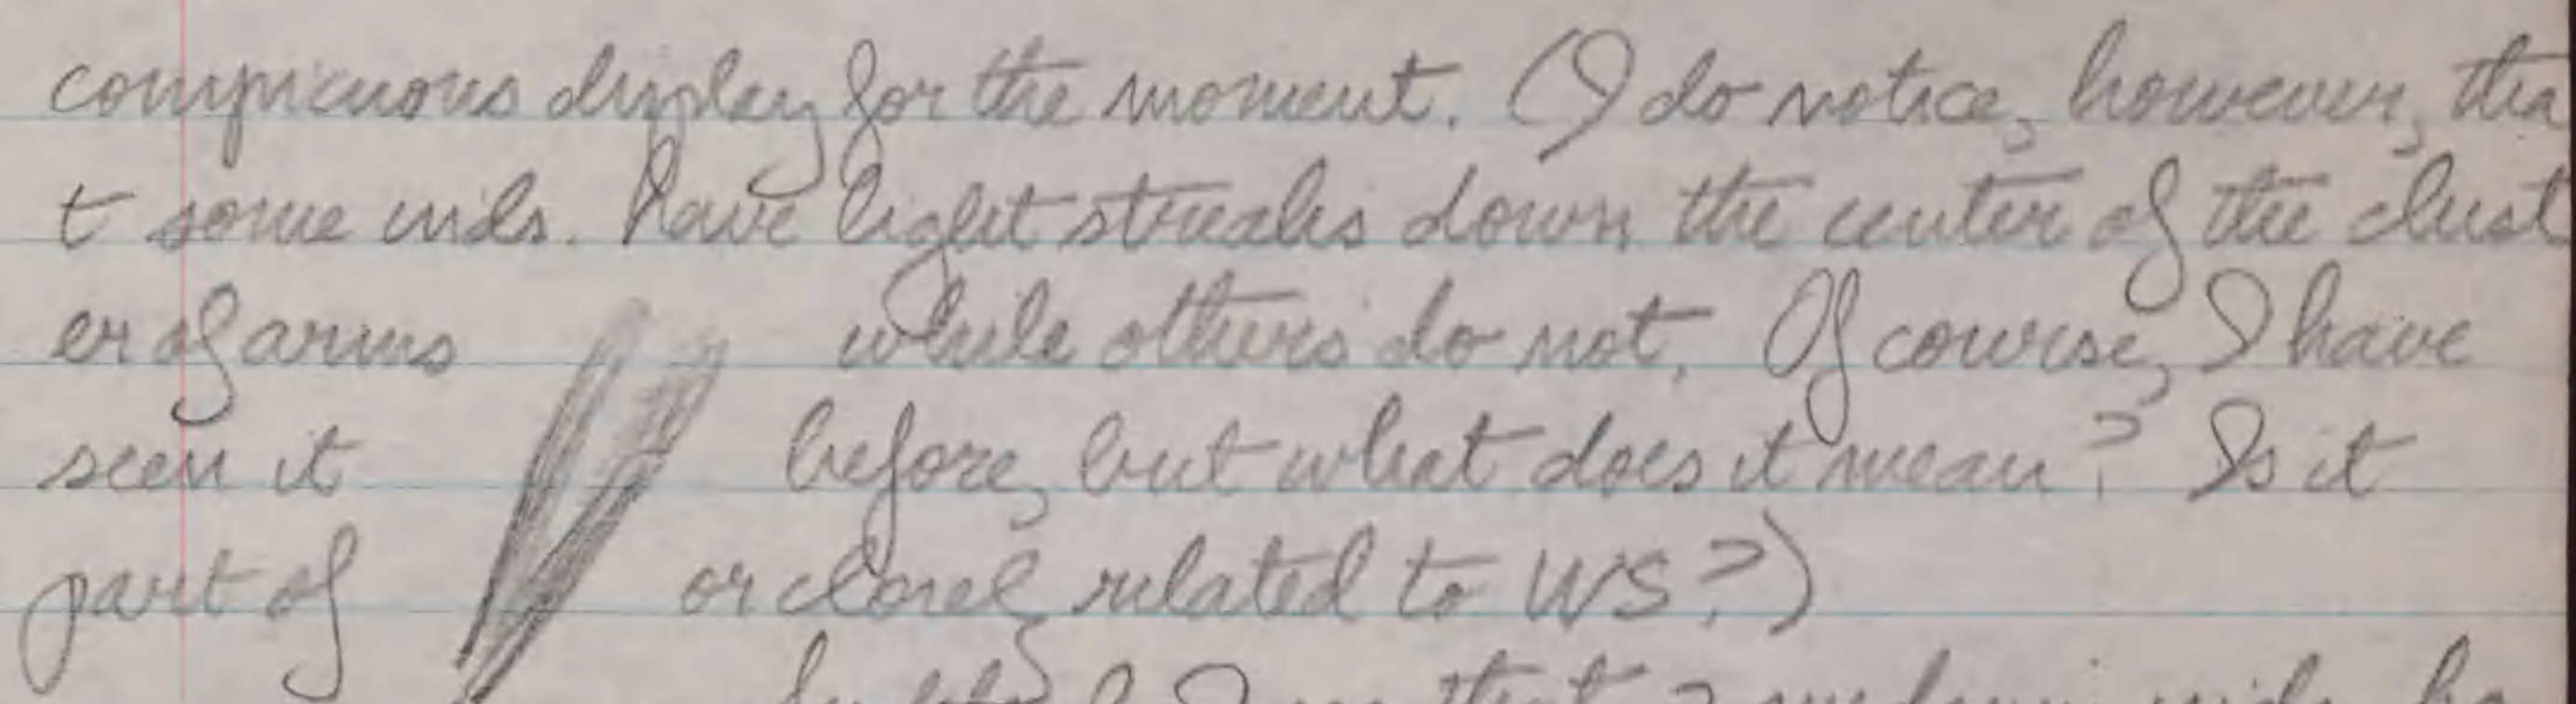 conspicuous display for the moment. (I do notice, however, tha
t some inds. have light streaks down the center of the clust
er of arms while others do not. Of course, I have
seen it before, but what does it mean? Is it
part of or closely related to WS?)
I see that